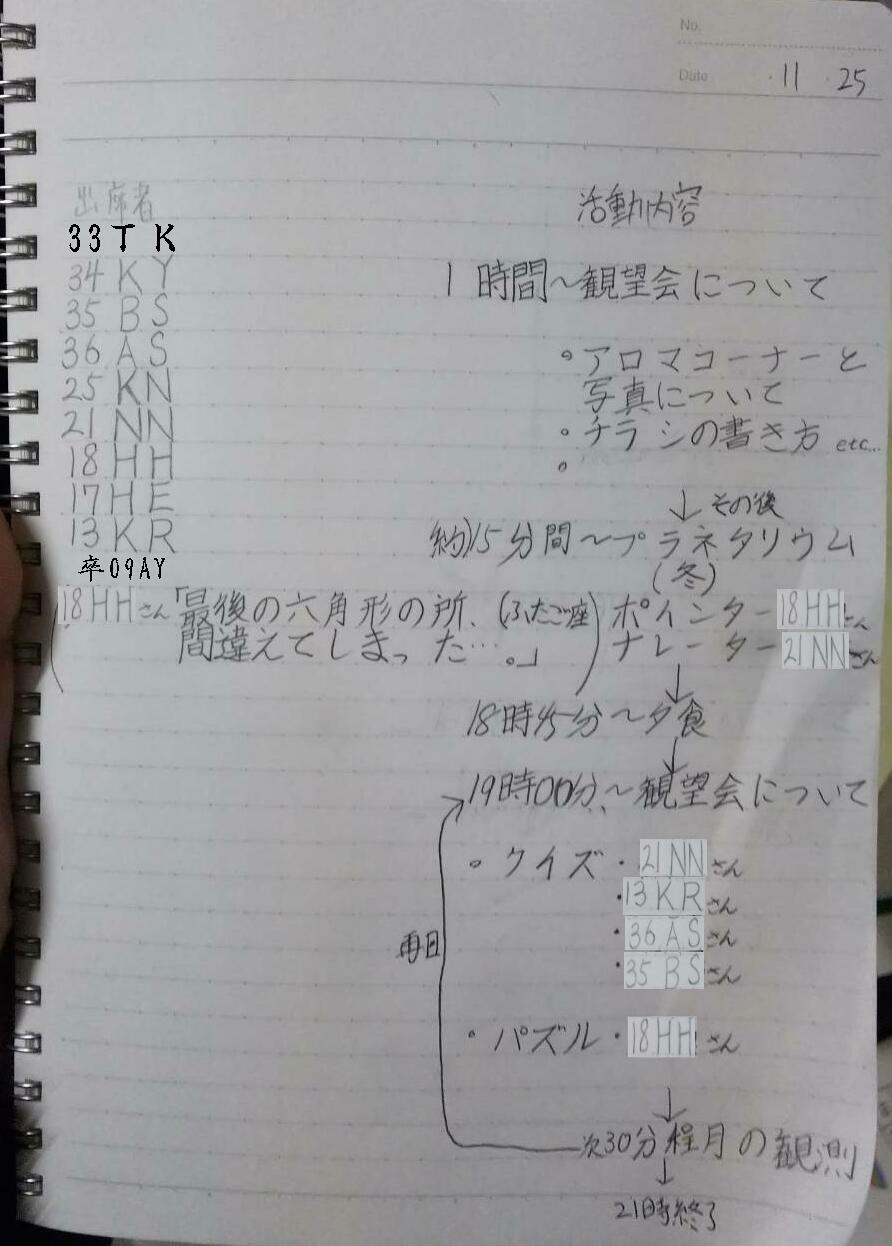 No.
Date ・11・25
出席者
33 T K
34 K Y
35 B S
36 A S
25 K N
21 N N
18 H H
17 H E
13 K R
卒09AY
活動内容
1時間〜観望会について
。アロマコーナーと
写真について
。チラシの書き方 etc...
。
↓その後
約15分間〜プラネタリウム
(冬)
ポインター18HHさん
ナレーター21NNさん
(18HHさん「最後の六角形の所、(ふたご座)
間違えてしまった…。」)
↓
18時45分〜夕食
↓
19時00分〜観望会について
。クイズ・21NNさん
・13KRさん
・36ASさん
・35BSさん
。パズル・18HHさん
↓
次30分程月の観測
↓
21時終了